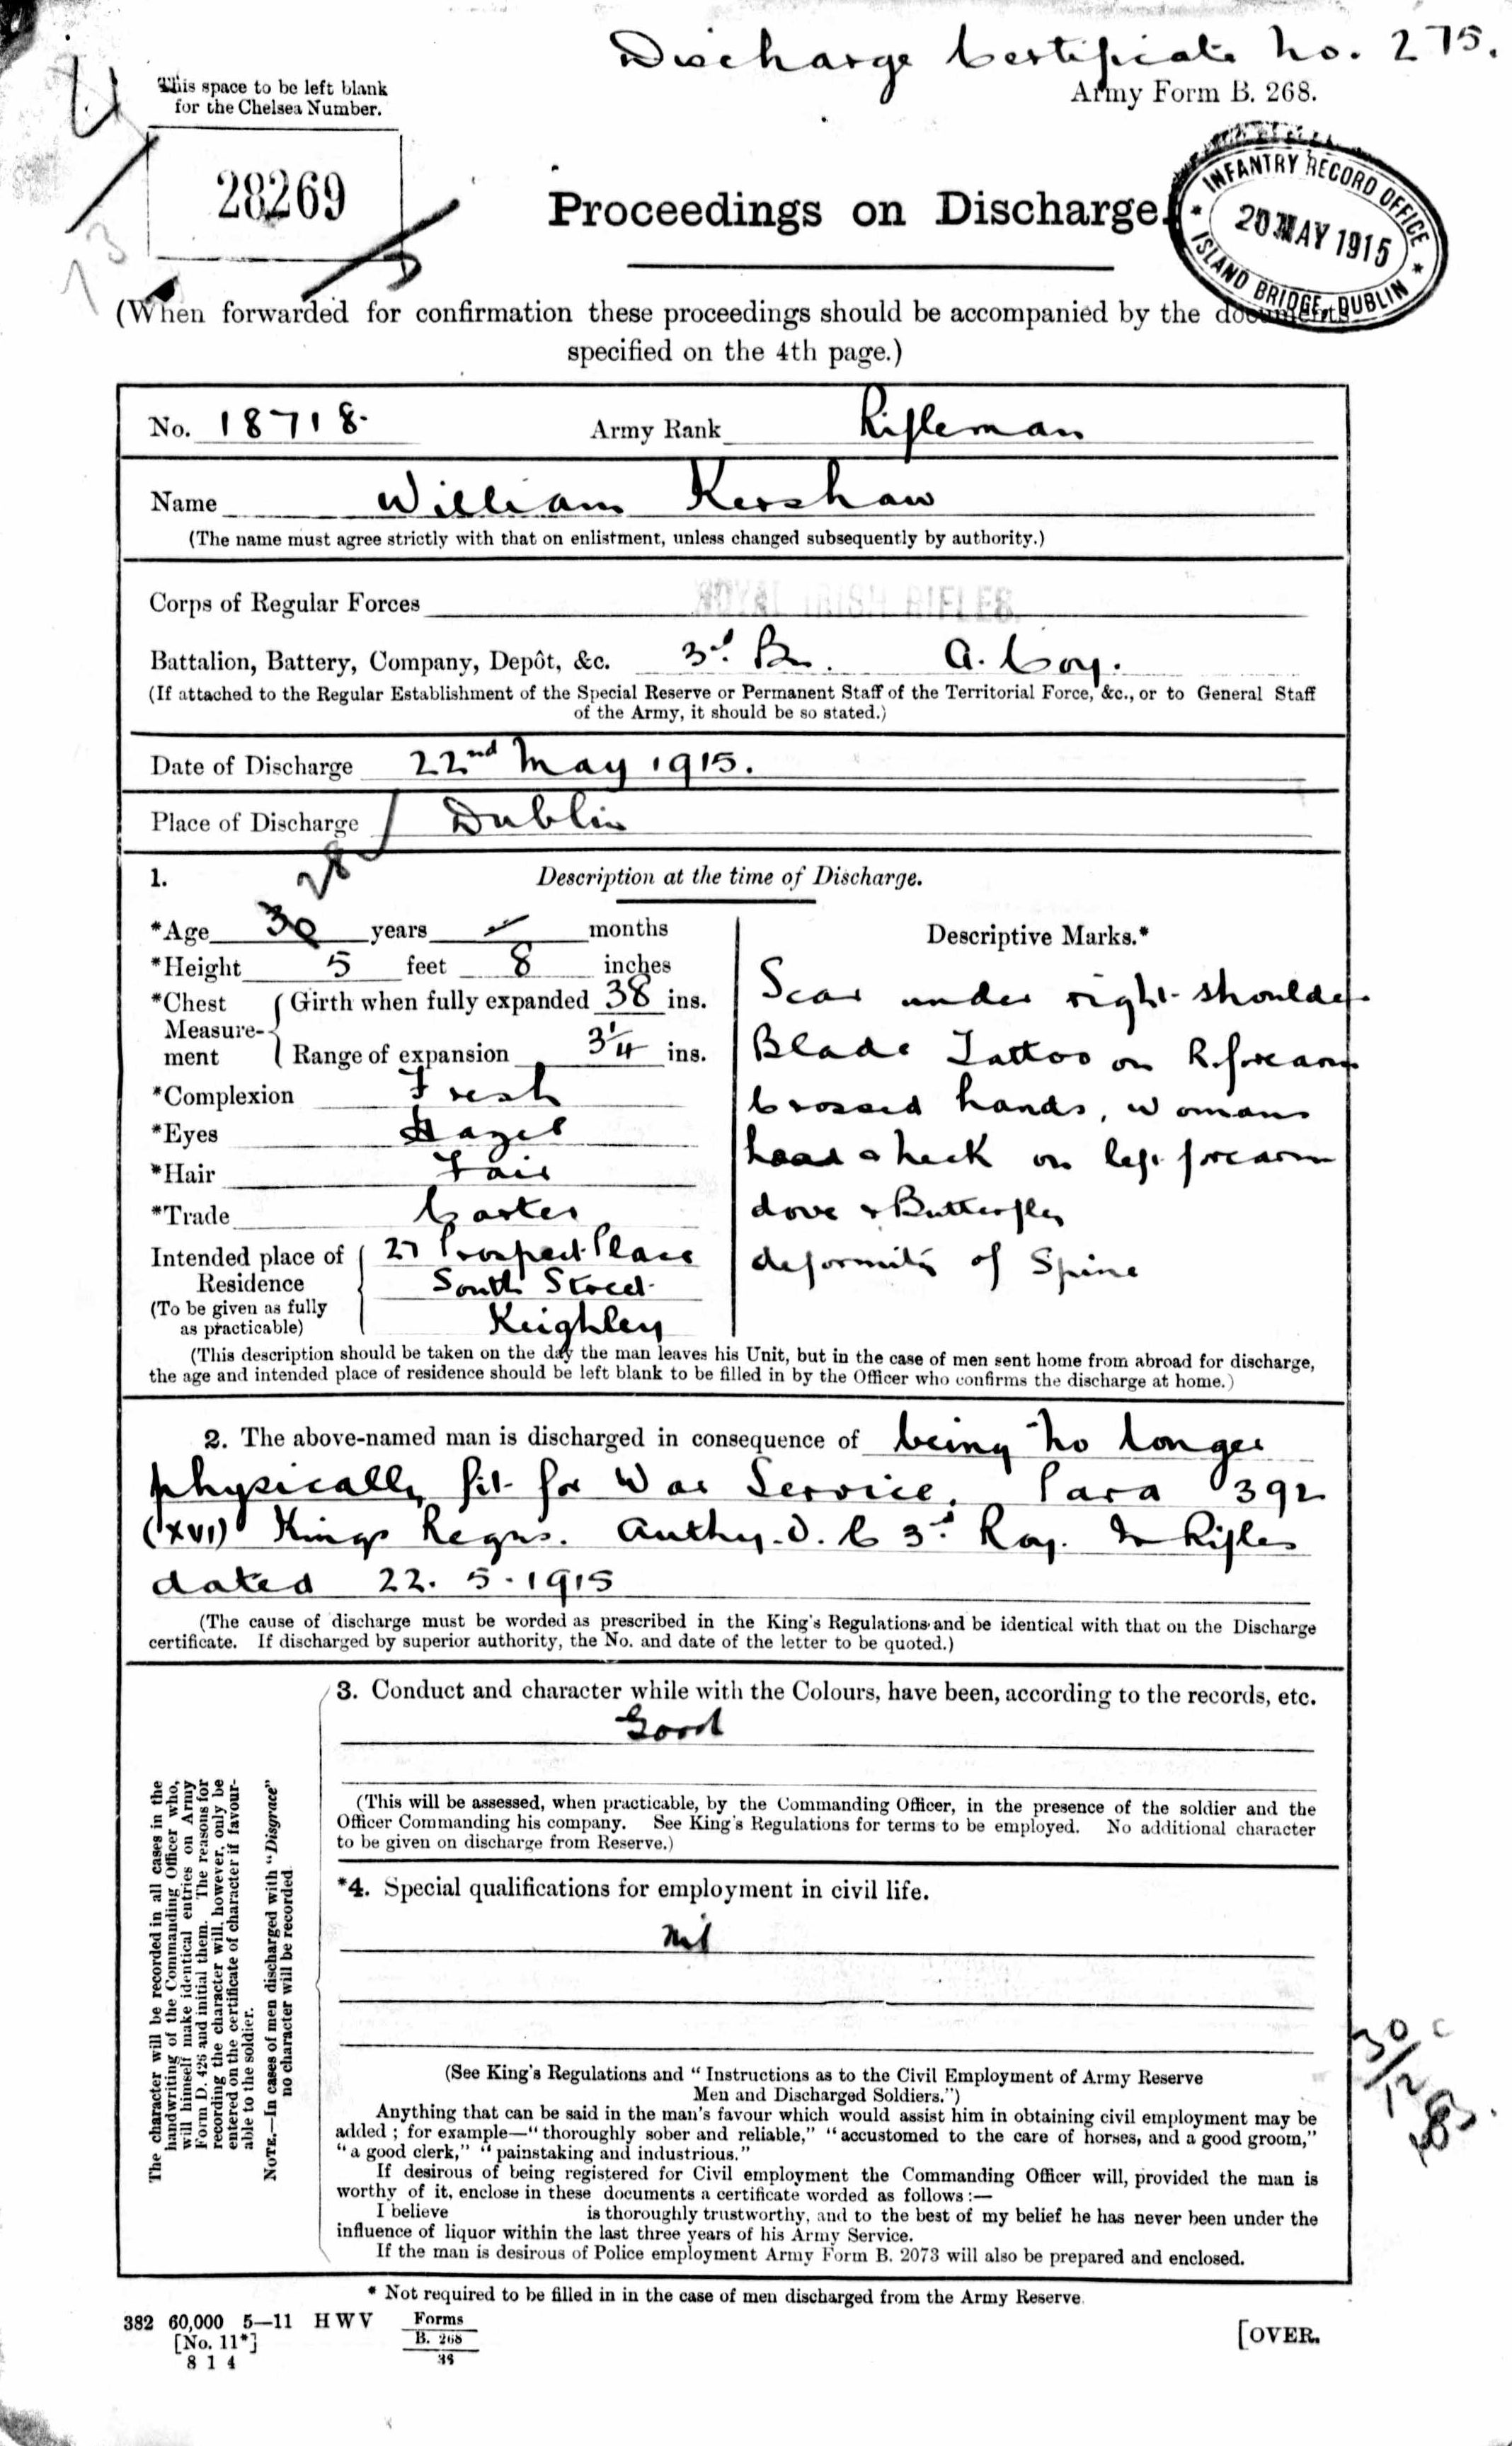 Discharge Certificate No. 275.
This space to be left blank
for the Chelsea Number.
Army Form B. 268.
28269
Proceedings on Discharge.
INFANTRY RECORD OFFICE
20 MAY 1915
ISLAND BRIDGE, DUBLIN
(When forwarded for confirmation these proceedings should be accompanied by the documents
specified on the 4th page.)
No. 18718. Army Rank Rifleman
Name William Kershaw
(The name must agree strictly with that on enlistment, unless changed subsequently by authority.)
Corps of Regular Forces ROYAL IRISH RIFLES.
Battalion, Battery, Company, Depôt, &c. 3rd. Bn. A. Coy.
(If attached to the Regular Establishment of the Special Reserve or Permanent Staff of the Territorial Force, &c., or to General Staff
of the Army, it should be so stated.)
Date of Discharge 22nd May 1915.
Place of Discharge Dublin
1. Description at the time of Discharge.
28
*Age 30 years months
*Height 5 feet 8 inches
*Chest Measurement { Girth when fully expanded 38 ins.
Range of expansion 3 1/4 ins.
*Complexion Fresh
*Eyes Hazel
*Hair Fair
*Trade Carter
Intended place of Residence 27 Prospect Place
South Street
Keighley
(To be given as fully
as practicable)
Descriptive Marks.*
Scar under right shoulder
Blade Tattoo on R. forearm
Crossed hands, womans
head & neck on left forearm
dove & Butterfly
deformity of Spine
(This description should be taken on the day the man leaves his Unit, but in the case of men sent home from abroad for discharge,
the age and intended place of residence should be left blank to be filled in by the Officer who confirms the discharge at home.)
2. The above-named man is discharged in consequence of being no longer
physically fit for War Service. Para 392
(XVI) Kings Regns. Authy. O. C 3rd Roy. Ir Rifles
dated 22. 5. 1915
(The cause of discharge must be worded as prescribed in the King's Regulations and be identical with that on the Discharge
certificate. If discharged by superior authority, the No. and date of the letter to be quoted.)
The character will be recorded in all cases in the
handwriting of the Commanding Officer who,
will himself make identical entries on Army
Form D. 426 and initial them. The reasons for
recording the character will, however, only be
entered on the certificate of character if favour-
able to the soldier.
NOTE.—In cases of men discharged with "Disgrace"
no character will be recorded
3. Conduct and character while with the Colours, have been, according to the records, etc.
Good
(This will be assessed, when practicable, by the Commanding Officer, in the presence of the soldier and the
Officer Commanding his company. See King's Regulations for terms to be employed. No additional character
to be given on discharge from Reserve.)
*4. Special qualifications for employment in civil life.
Nil
(See King's Regulations and "Instructions as to the Civil Employment of Army Reserve
Men and Discharged Soldiers.")
Anything that can be said in the man's favour which would assist him in obtaining civil employment may be
added; for example—"thoroughly sober and reliable," "accustomed to the care of horses, and a good groom,"
"a good clerk," "painstaking and industrious."
If desirous of being registered for Civil employment the Commanding Officer will, provided the man is
worthy of it, enclose in these documents a certificate worded as follows:—
I believe is thoroughly trustworthy, and to the best of my belief he has never been under the
influence of liquor within the last three years of his Army Service.
If the man is desirous of Police employment Army Form B. 2073 will also be prepared and enclosed.
* Not required to be filled in in the case of men discharged from the Army Reserve.
382 60,000 5—11 H W V Forms
[No. 11*] B. 268
8 1 4 38
[OVER.